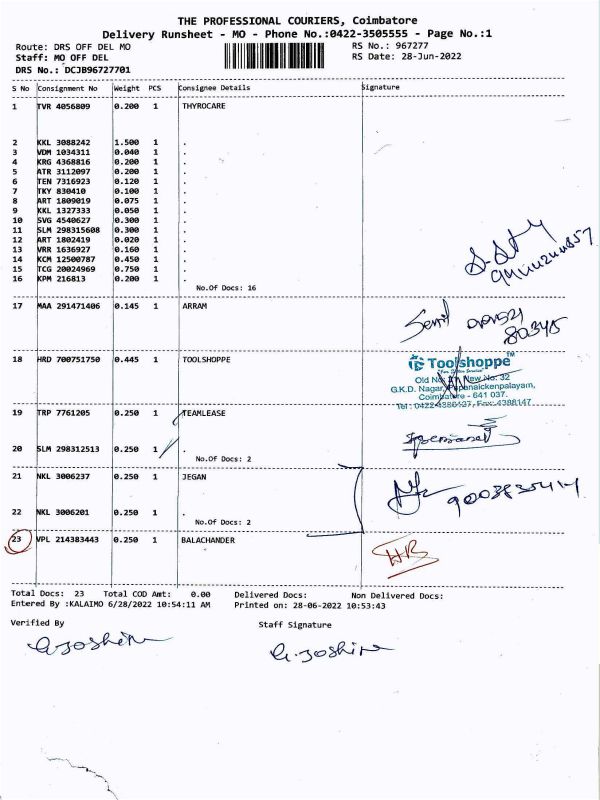 THE PROFESSIONAL COURIERS, Coimbatore
Delivery Runsheet - MO - Phone No.:0422-3505555 - Page No.:1
Route: DRS OFF DEL MO RS No.: 967277
Staff: MO OFF DEL RS Date: 28-Jun-2022
DRS No.: DCJB96727701
S No Consignment No Weight PCS Consignee Details Signature
1 TVR 4056809 0.200 1 THYROCARE
2 KKL 3088242 1.500 1 .
3 VDM 1034311 0.040 1 .
4 KRG 4368816 0.200 1 .
5 ATR 3112097 0.200 1 .
6 TEN 7316923 0.120 1 .
7 TKY 830410 0.100 1 .
8 ART 1809019 0.075 1 .
9 KKL 1327333 0.050 1 .
10 SVG 4540627 0.300 1 .
11 SLM 298315608 0.300 1 .
12 ART 1802419 0.020 1 .
13 VRR 1636927 0.160 1 .
14 KCM 12500787 0.450 1 .
15 TCG 20024969 0.750 1 .
16 KPM 216813 0.200 1 .
No.Of Docs: 16
17 MAA 291471406 0.145 1 ARRAM
18 HRD 700751750 0.445 1 TOOLSHOPPE
Toolshoppe™
Old No. New No: 32
G.K.D. Nagar, Papanaickenpalayam,
Coimbatore - 641 037.
19 TRP 7761205 0.250 1 TEAMLEASE
20 SLM 298312513 0.250 1 .
No.Of Docs: 2
21 NKL 3006237 0.250 1 JEGAN
22 NKL 3006201 0.250 1 .
No.Of Docs: 2
23 VPL 214383443 0.250 1 BALACHANDER
Total Docs: 23 Total COD Amt: 0.00 Delivered Docs: Non Delivered Docs:
Entered By :KALAIMO 6/28/2022 10:54:11 AM Printed on: 28-06-2022 10:53:43
Verified By Staff Signature